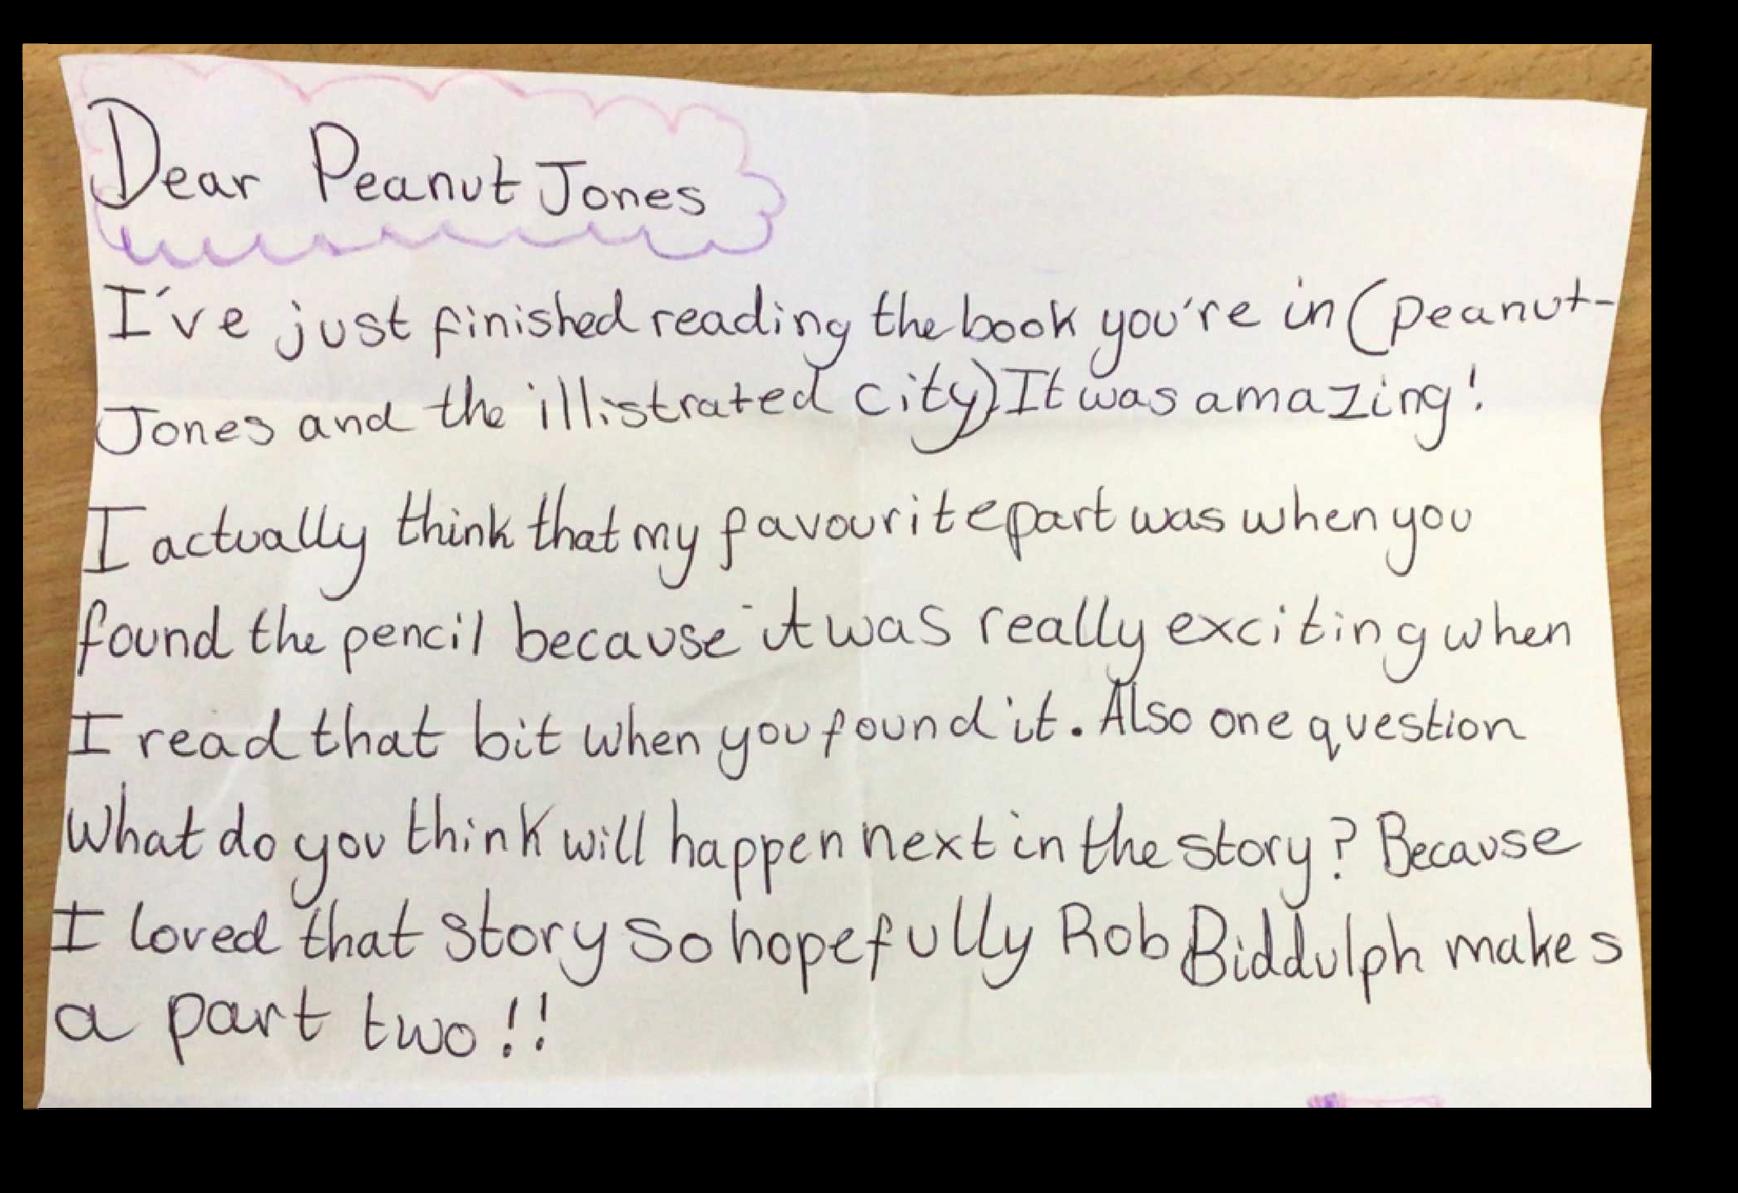 Dear Peanut Jones
I've just finished reading the book you're in (peanut-
Jones and the illistrated city) It was amazing!
I actually think that my favourite part was when you
found the pencil because it was really exciting when
I read that bit when you found it. Also one question
What do you think will happen next in the story? Because
I loved that story so hopefully Rob Biddulph makes
a part two!!